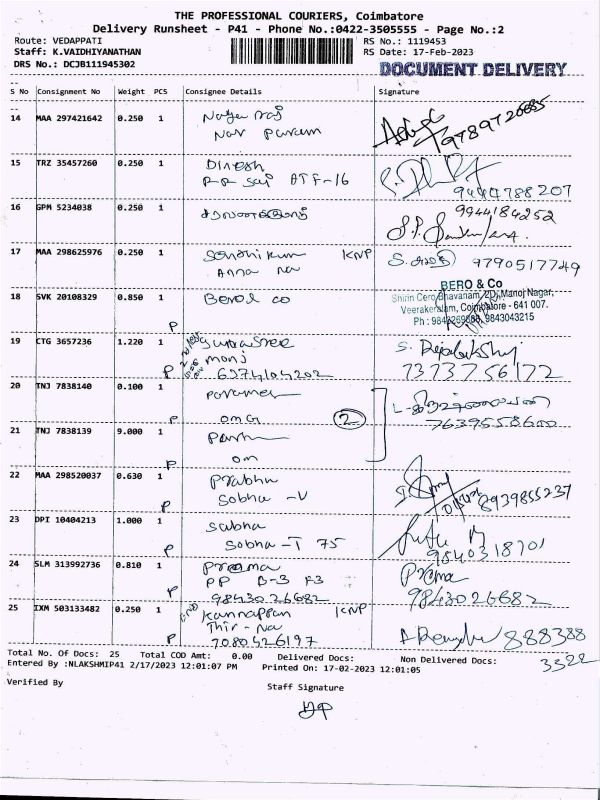 THE PROFESSIONAL COURIERS, Coimbatore
Delivery Runsheet - P41 - Phone No.:0422-3505555 - Page No.:2
Route: VEDAPPATI RS No.: 1119453
Staff: K.VAIDHIYANATHAN RS Date: 17-Feb-2023
DRS No.: DCJB111945302 DOCUMENT DELIVERY
S No Consignment No Weight PCS Consignee Details Signature
14 MAA 297421642 0.250 1
Nav Param 9789726685
15 TRZ 35457260 0.250 1 Dinesh
PR Sai ATF-16 9444788207
16 GPM 5234038 0.250 1 9944184252
17 MAA 298625976 0.250 1 Senthil Kum KNP
Anna Na 9790517749
18 SVK 20108329 0.850 1 Berol co
BERO & Co
Shirin Cero Bhavanam, 2D, Manoj Nagar,
Veerakeralam, Coimbatore - 641 007.
P 9843043215
19 CTG 3657236 1.220 1
monj
P 6374104202 7373756172
20 TNJ 7838140 0.100 1
P OMG 2 7639558600
21 TNJ 7838139 9.000 1
P om
22 MAA 298520037 0.630 1 Prabhu
P Sobha -V 8939855237
23 DPI 10404213 1.000 1 Sabha
P Sobha -T 75 9840318701
24 SLM 313992736 0.810 1 Prema Prema
PP B-3 F3
P 9843026682 9843026682
25 IXM 503133482 0.250 1 Kannappan KNP
Thir - Na
P 7080426197 888388
3322
Total No. Of Docs: 25 Total COD Amt: 0.00 Delivered Docs: Non Delivered Docs:
Entered By :NLAKSHMIP41 2/17/2023 12:01:07 PM Printed On: 17-02-2023 12:01:05
Verified By Staff Signature